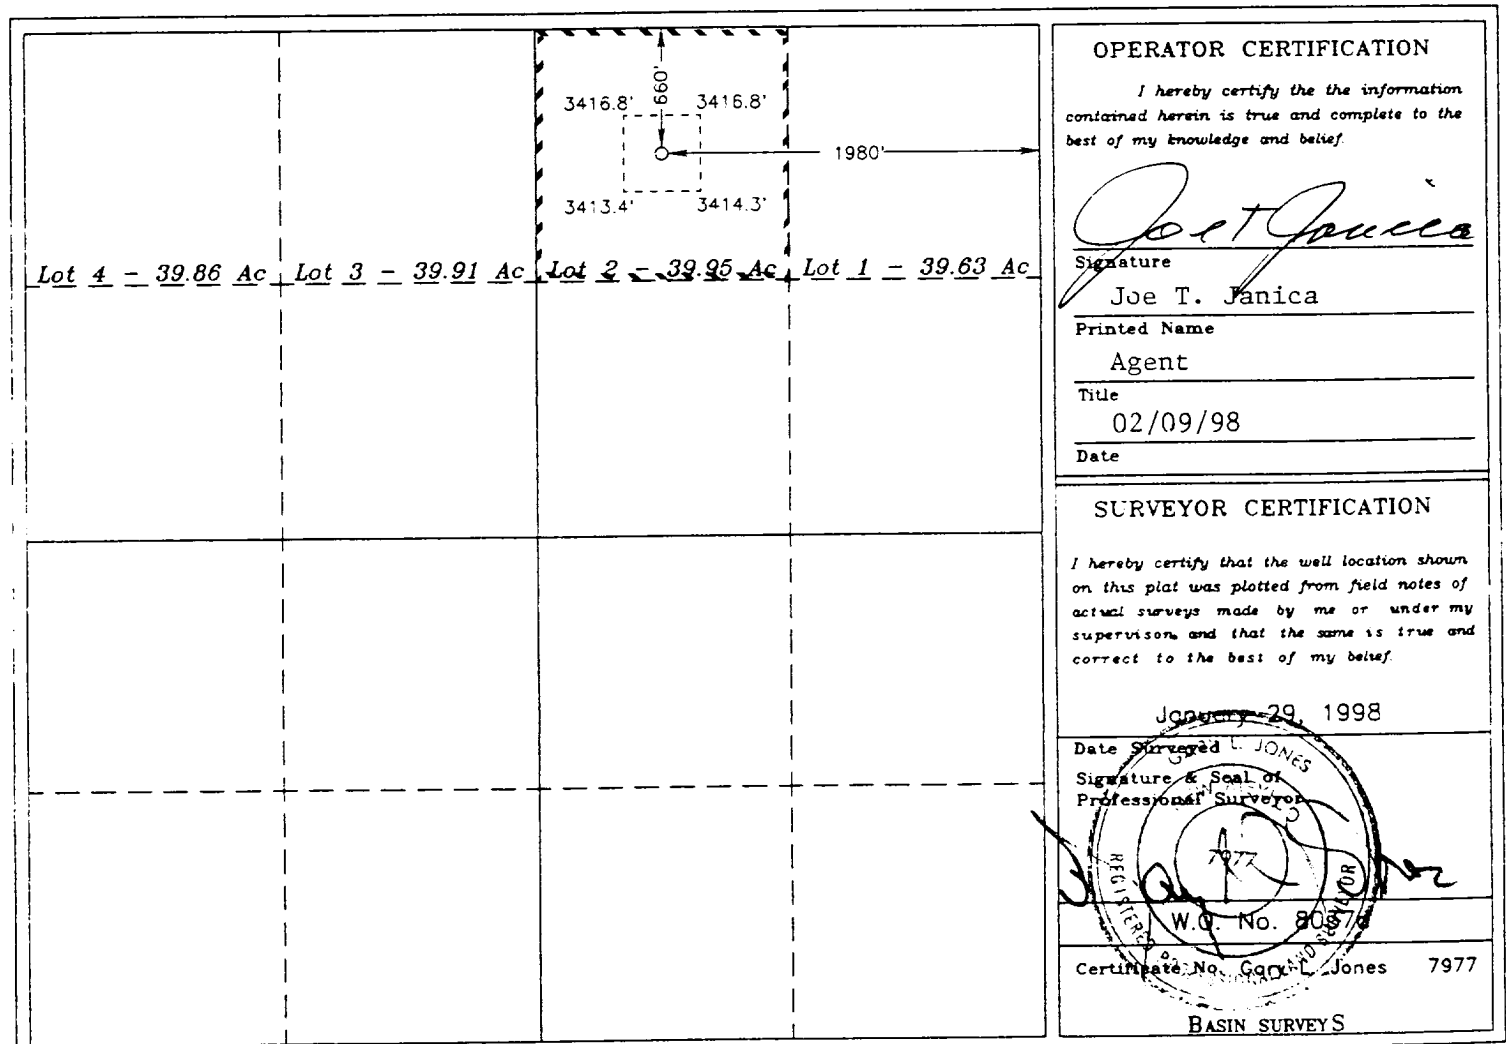 3416.8' 660' 3416.8'
1980'
3413.4' 3414.3'
Lot 4 - 39.86 Ac Lot 3 - 39.91 Ac Lot 2 - 39.95 Ac Lot 1 - 39.63 Ac
OPERATOR CERTIFICATION
I hereby certify the the information
contained herein is true and complete to the
best of my knowledge and belief.
Joe T Janica
Signature
Joe T. Janica
Printed Name
Agent
Title
02/09/98
Date
SURVEYOR CERTIFICATION
I hereby certify that the well location shown
on this plat was plotted from field notes of
actual surveys made by me or under my
supervison, and that the same is true and
correct to the best of my belief.
January 29, 1998
Date Surveyed
Signature & Seal of
Professional Surveyor
GARY L. JONES
NEW MEXICO
7977
REGISTERED PROFESSIONAL LAND SURVEYOR
W.O. No.
Certificate No. Gary L. Jones 7977
BASIN SURVEYS